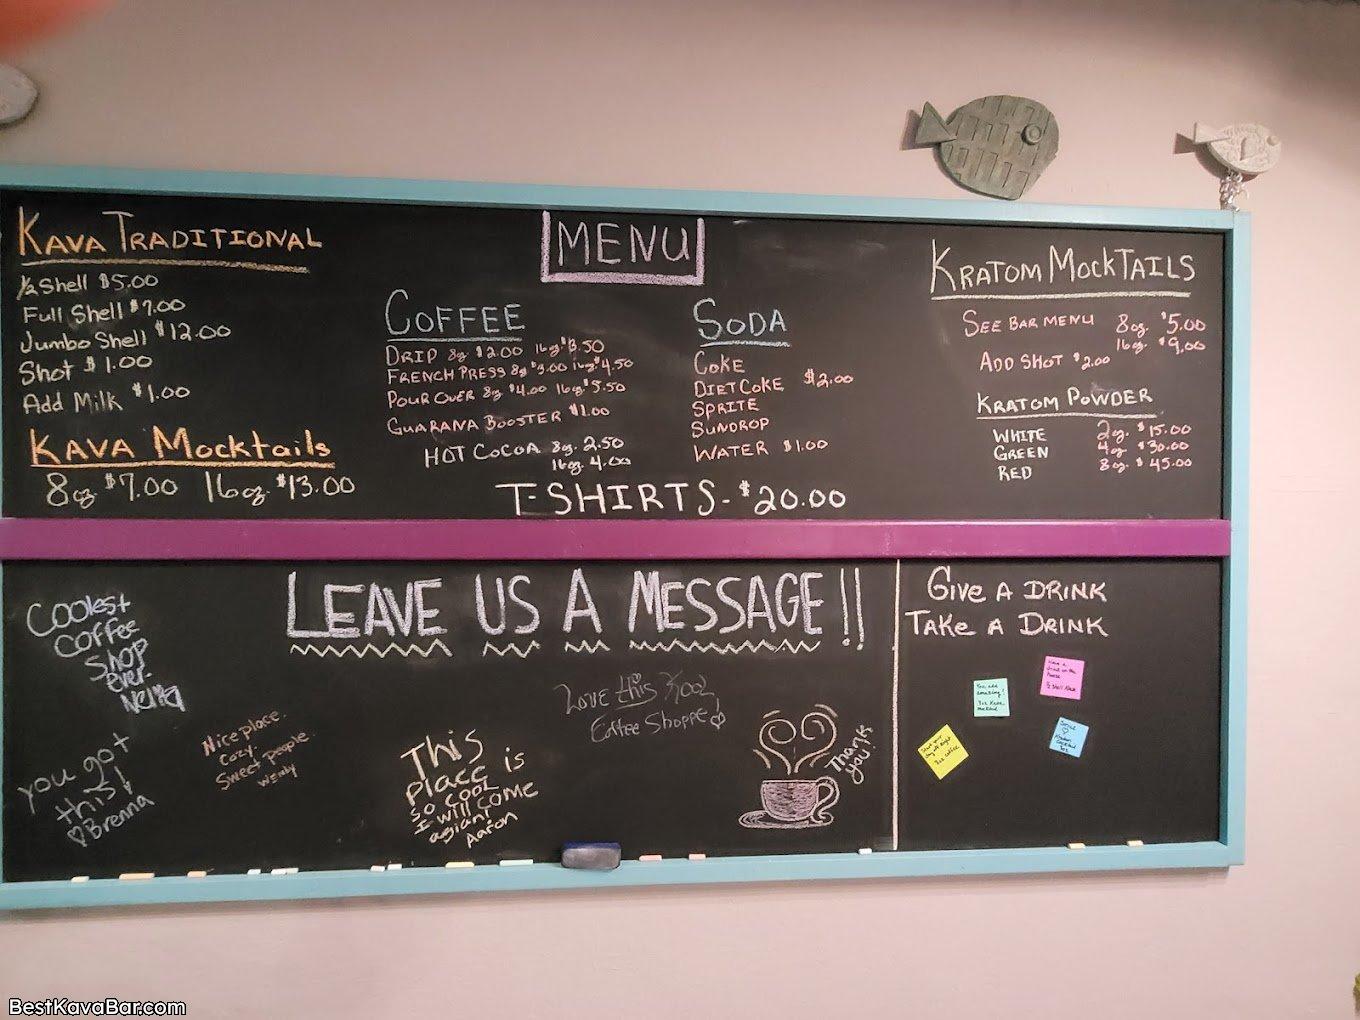 KAVA TRADITIONAL
1/2 Shell $5.00
Full Shell $7.00
Jumbo Shell $12.00
Shot $1.00
Add Milk $1.00
KAVA Mocktails
8oz. $7.00 16oz. $13.00
MENU
COFFEE
DRIP 8oz. $2.00 16oz. $3.50
FRENCH PRESS 8oz. $3.00 16oz. $4.50
POUR OVER 8oz. $4.00 16oz. $5.50
GUARANA BOOSTER $1.00
HOT COCOA 8oz. 2.50
16oz. 4.00
SODA
COKE
DIET COKE $2.00
SPRITE
SUNDROP
WATER $1.00
T-SHIRTS - $20.00
KRATOM MOCKTAILS
SEE BAR MENU 8oz. $5.00
16oz. $9.00
ADD SHOT $2.00
KRATOM POWDER
WHITE 2oz. $15.00
GREEN 4oz. $30.00
RED 8oz. $45.00
LEAVE US A MESSAGE!!
Coolest
Coffee
Shop
Ever.
you got
this!
♡Brenna
Nice place.
Cozy.
Sweet people.
Wendy
This
place is
so cool
I will come
agian!
Aaron
Love this Kool
Coffee Shoppe!
Thank
you!
GIVE A DRINK
TAKE A DRINK
Have a
drink on the
house
You are
amazing!
BestKavaBar.com